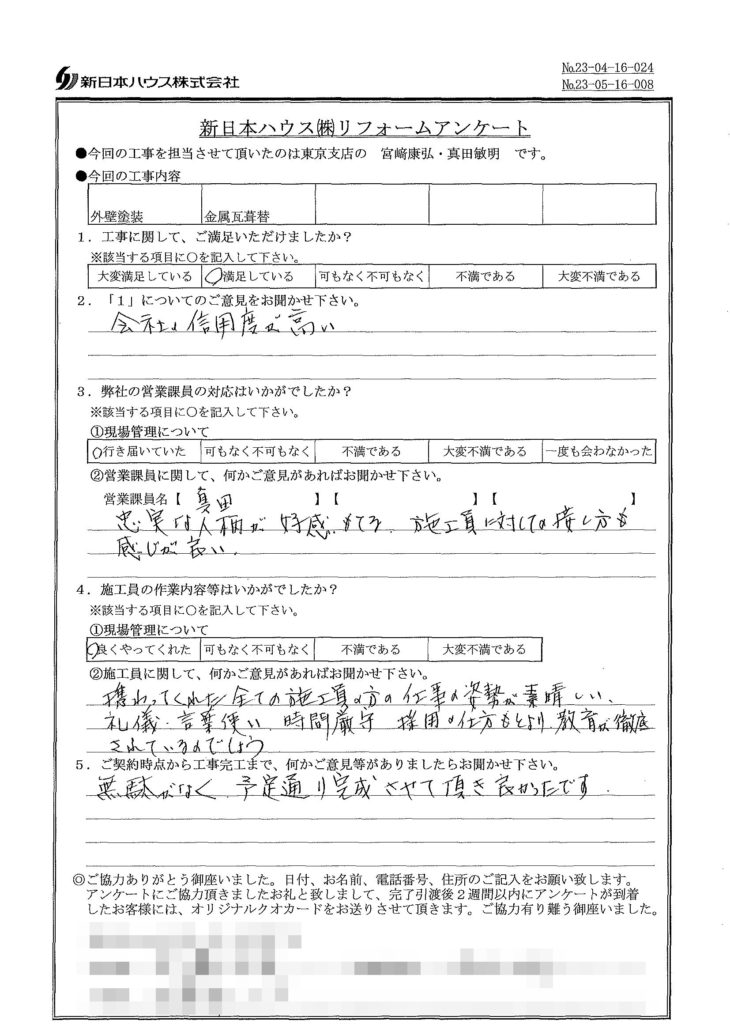 新日本ハウス株式会社
№23-04-16-024
№23-05-16-008
新日本ハウス㈱リフォームアンケート
●今回の工事を担当させて頂いたのは東京支店の 宮﨑康弘・真田敏明 です。
●今回の工事内容
外壁塗装 金属瓦葺替
1．工事に関して、ご満足いただけましたか？
※該当する項目に○を記入して下さい。
大変満足している ○満足している 可もなく不可もなく 不満である 大変不満である
2．「1」についてのご意見をお聞かせ下さい。
会社の信用度が高い
3．弊社の営業課員の対応はいかがでしたか？
※該当する項目に○を記入して下さい。
①現場管理について
○行き届いていた 可もなく不可もなく 不満である 大変不満である 一度も会わなかった
②営業課員に関して、何かご意見があればお聞かせ下さい。
営業課員名【 真田 】【 】【 】
忠実な人柄が好感もてる、施工員に対しての接し方も
感じが良い、
4．施工員の作業内容等はいかがでしたか？
※該当する項目に○を記入して下さい。
①現場管理について
○良くやってくれた 可もなく不可もなく 不満である 大変不満である
②施工員に関して、何かご意見があればお聞かせ下さい。
携わってくれた全ての施工員の方の仕事の姿勢が素晴しい、
礼儀・言葉使い、時間厳守 採用の仕方もとより、教育が徹底
されているのでしょう
5．ご契約時点から工事完工まで、何かご意見等がありましたらお聞かせ下さい。
無駄がなく、予定通り完成させて頂き良かったです．
◎ご協力ありがとう御座いました。日付、お名前、電話番号、住所のご記入をお願い致します。
アンケートにご協力頂きましたお礼と致しまして、完了引渡後2週間以内にアンケートが到着
したお客様には、オリジナルクオカードをお送りさせて頂きます。ご協力有り難う御座いました。